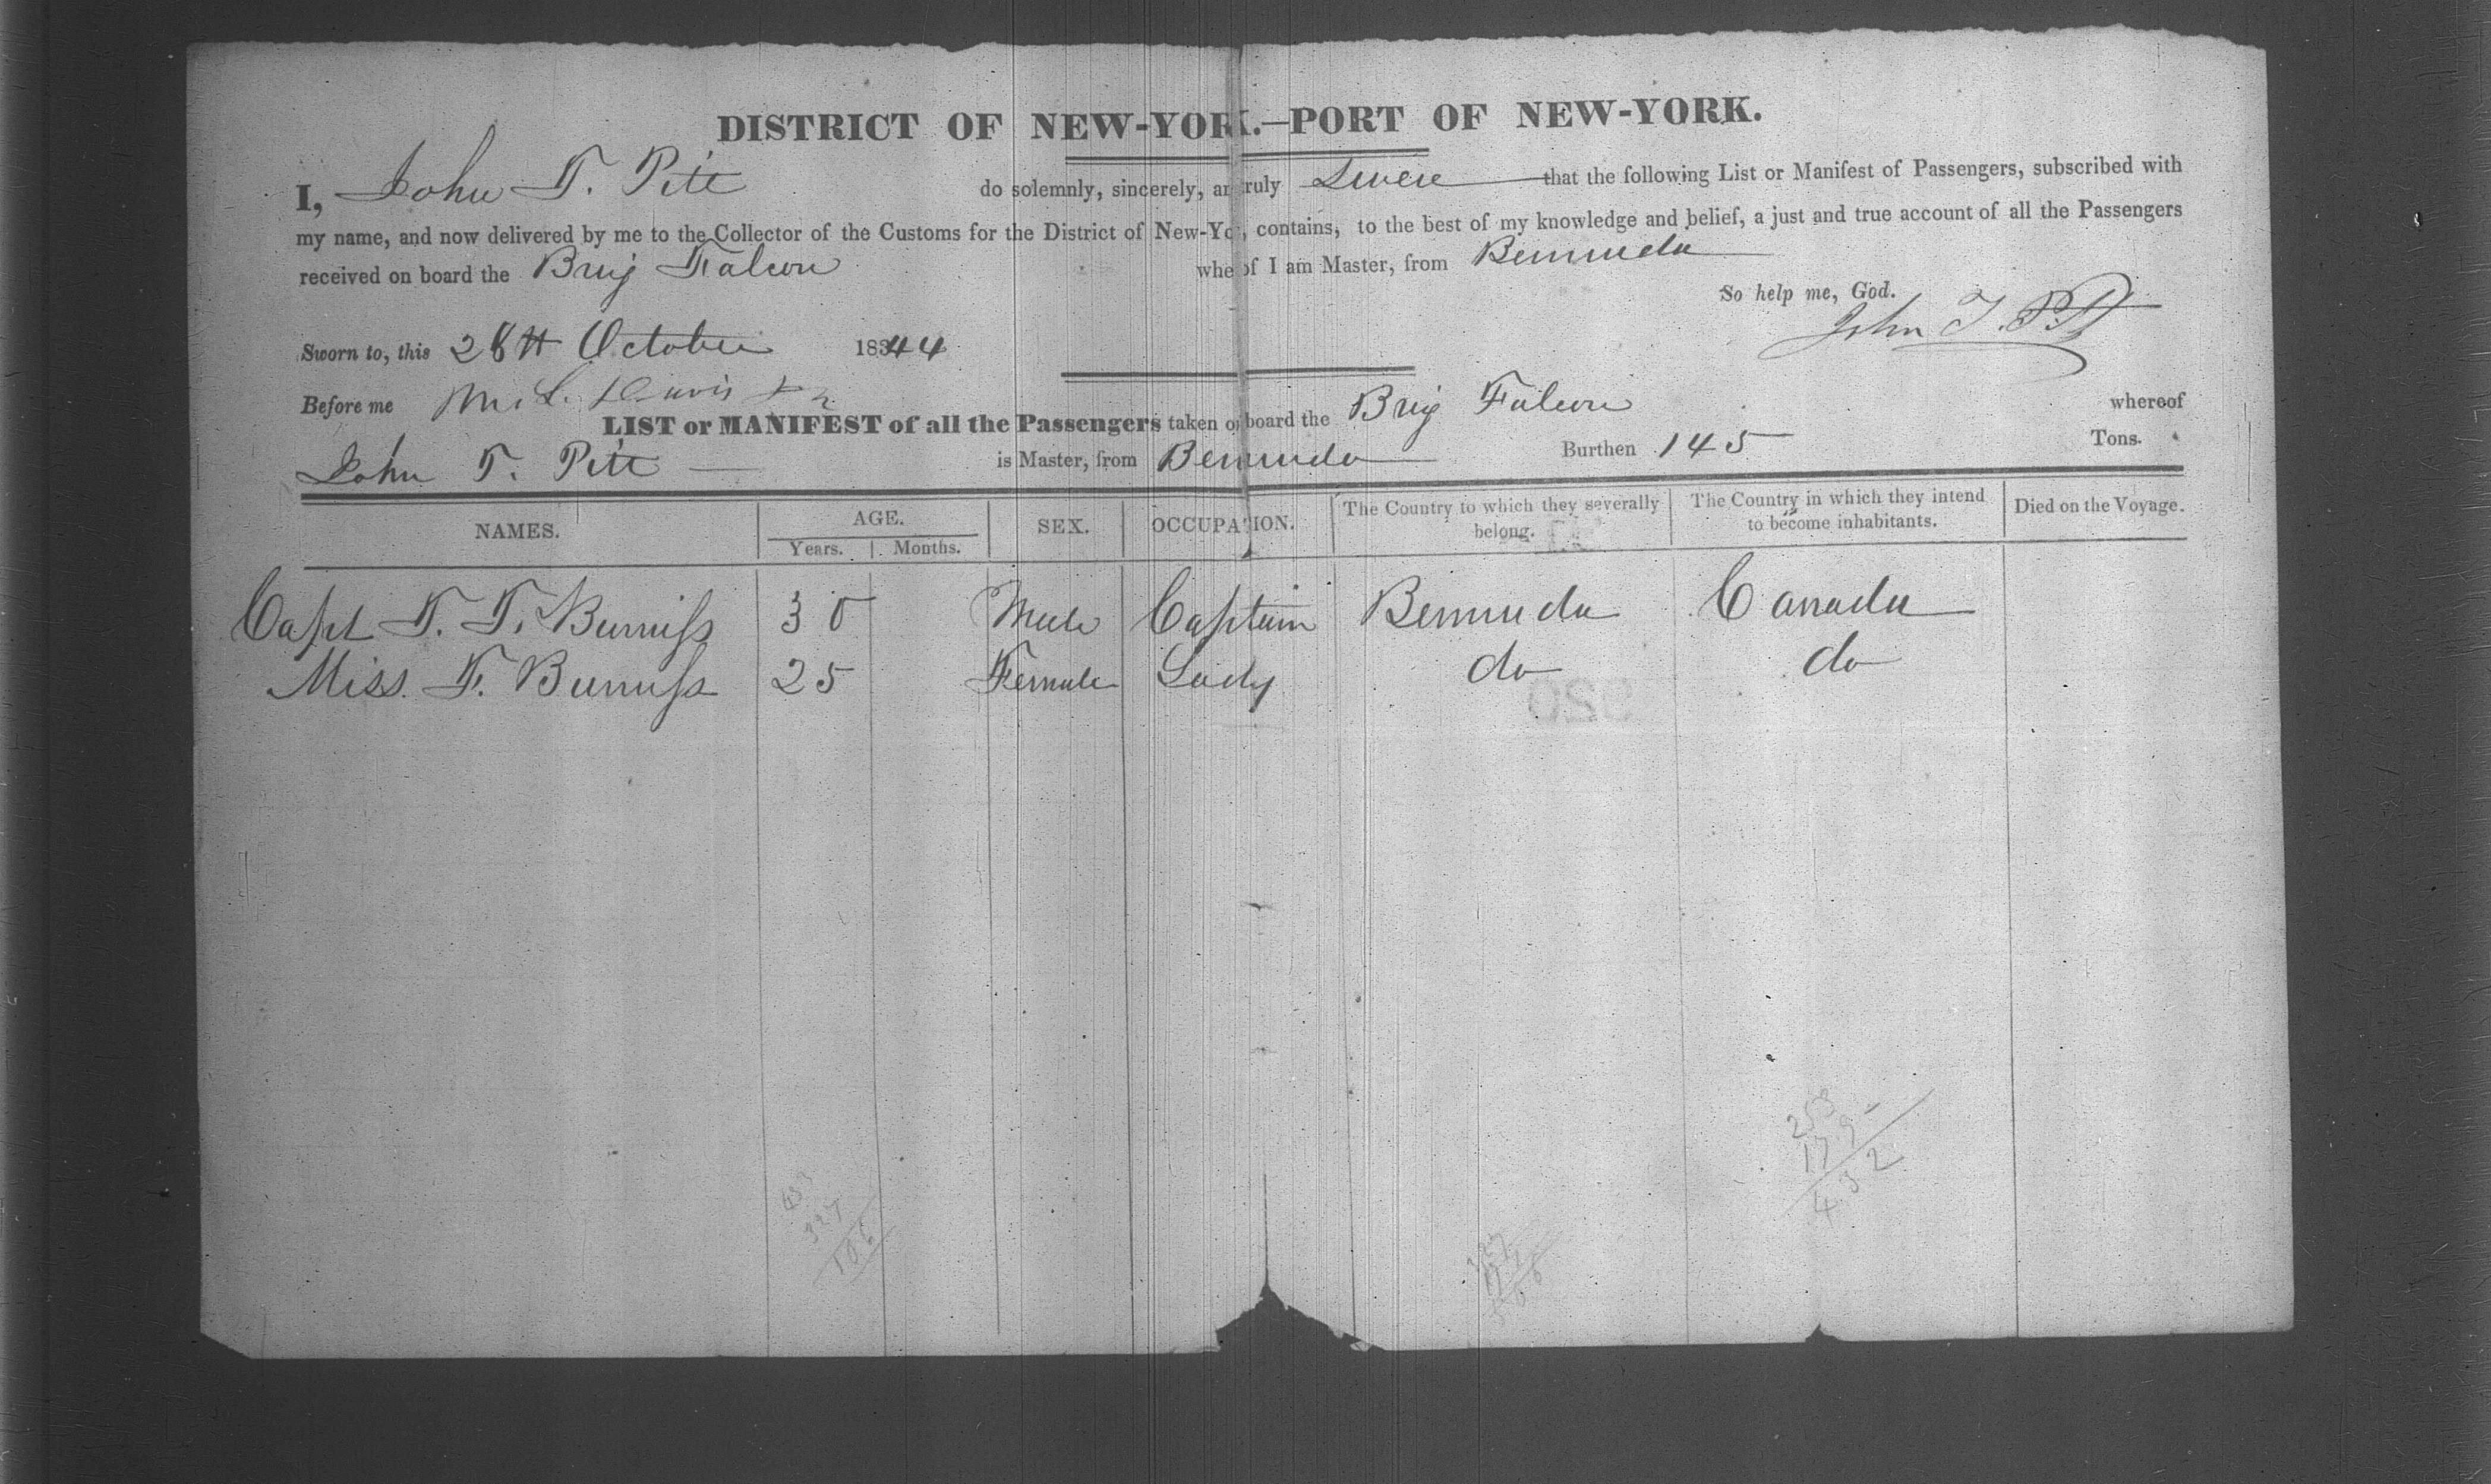 DISTRICT OF NEW-YORK.—PORT OF NEW-YORK.
I, John T. Pitt do solemnly, sincerely, an truly Swere that the following List or Manifest of Passengers, subscribed with
my name, and now delivered by me to the Collector of the Customs for the District of New-Yo , contains, to the best of my knowledge and belief, a just and true account of all the Passengers
received on board the Brig Falcon whe of I am Master, from Bermuda
So help me, God.
John T. Pitt
Sworn to, this 28th October 18344
Before me M. L. Davis
LIST or MANIFEST of all the Passengers taken o board the Brig Falcon whereof
John T. Pitt is Master, from Bermuda Burthen 145 Tons.
NAMES. AGE. SEX. OCCUPATION. The Country to which they severally belong. The Country in which they intend to become inhabitants. Died on the Voyage.
Years. Months.
Capt T. T. Burniss 30 Male Captain Bermuda Canada
Miss. F. Burniss 25 Female Lady do do
920
253
179
432
433
327
106